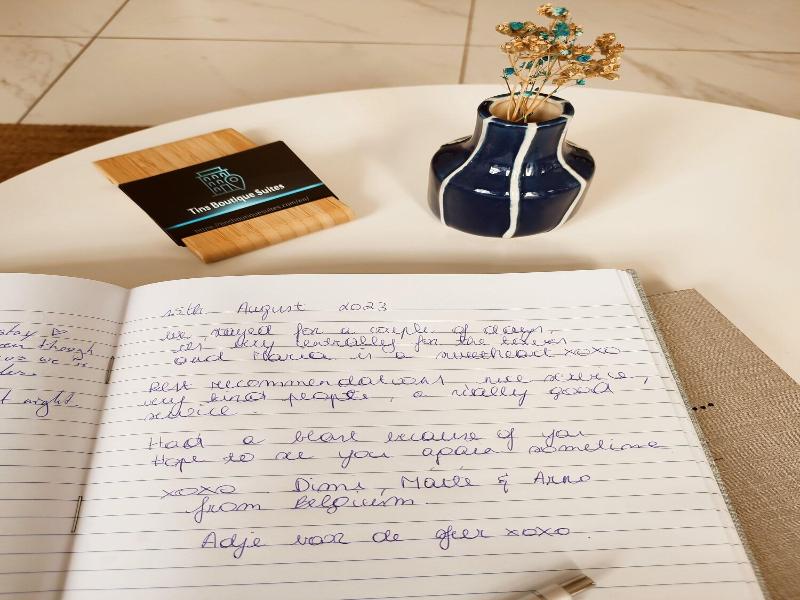 Tins Boutique Suites
stay
though
we is
night
12th August 2023
we stayed for a couple of days,
very centrally for the
and Maria is a sweetheart xoxo
Best recommendations, nice service,
very kind people, a really good
service.
Had a blast because of you
Hope to see you again sometime
xoxo Dimi, & Arno
from Belguim
Adje voor de sfeer xoxo.